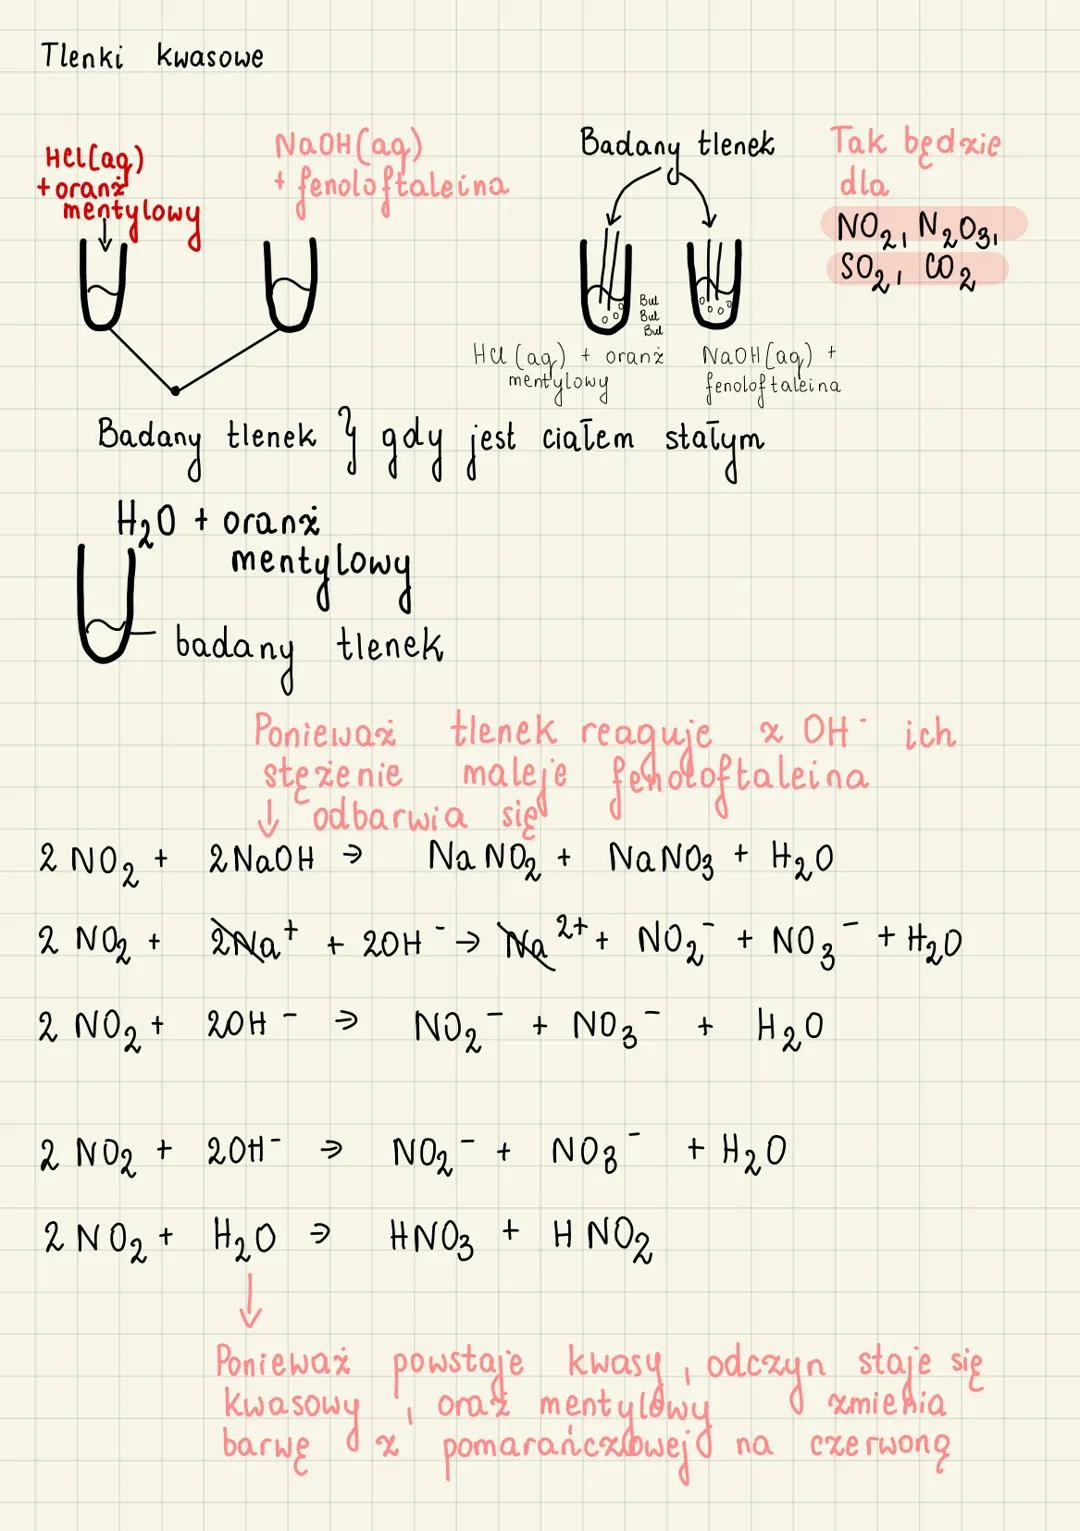 Tlenki kwasowe
HCl(aq)
+ oranż
mentylowy
NaOH(aq)
+ fenoloftaleina
Badany tlenek
Tak będzie
dla
NO₂, N₂O₃,
SO₂, CO₂
Bul
Bul
Bul
HCl (aq) + oranż
mentylowy
NaOH(aq) +
fenoloftaleina
Badany tlenek } gdy jest ciałem stałym
H₂O + oranż
mentylowy
badany tlenek
Ponieważ tlenek reaguje z OH⁻ ich
stężenie maleje fenoloftaleina
↓ odbarwia się
2 NO₂ + 2 NaOH → NaNO₂ + NaNO₃ + H₂O
2 NO₂ + 2Na⁺ + 2OH⁻ → Na²⁺ + NO₂⁻ + NO₃⁻ + H₂O
2 NO₂ + 2OH⁻ → NO₂⁻ + NO₃⁻ + H₂O
2 NO₂ + 2OH⁻ → NO₂⁻ + NO₃⁻ + H₂O
2 NO₂ + H₂O → HNO₃ + HNO₂
↓
Ponieważ powstaje kwasy, odczyn staje się
kwasowy, oraż mentylowy zmienia
barwę z pomarańczowej na czerwoną